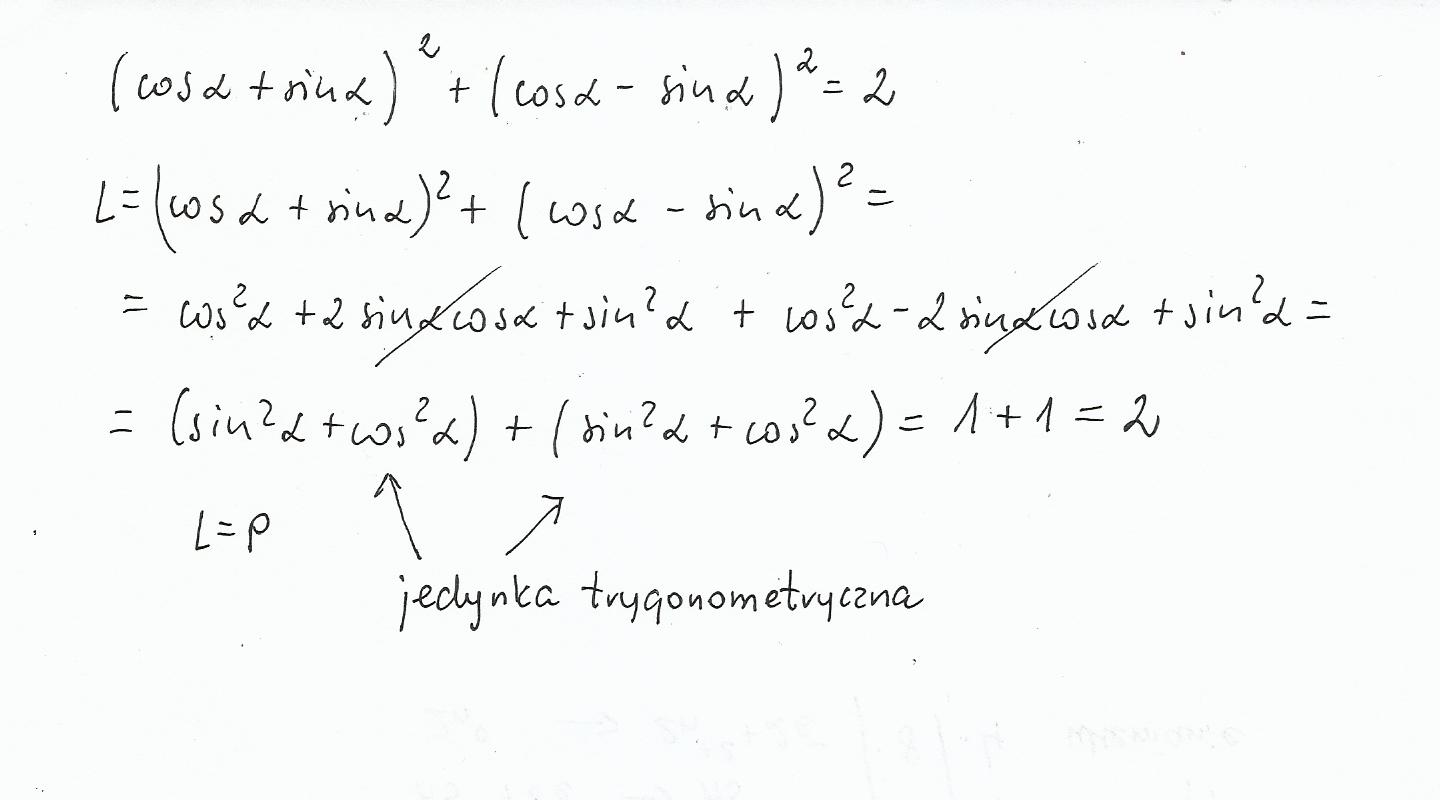 (cosα + sinα)² + (cosα - sinα)² = 2
L = (cosα + sinα)² + (cosα - sinα)² =
= cos²α + 2 sinα cosα + sin²α + cos²α - 2 sinα cosα + sin²α =
= (sin²α + cos²α) + (sin²α + cos²α) = 1 + 1 = 2
L = P
jedynka trygonometryczna